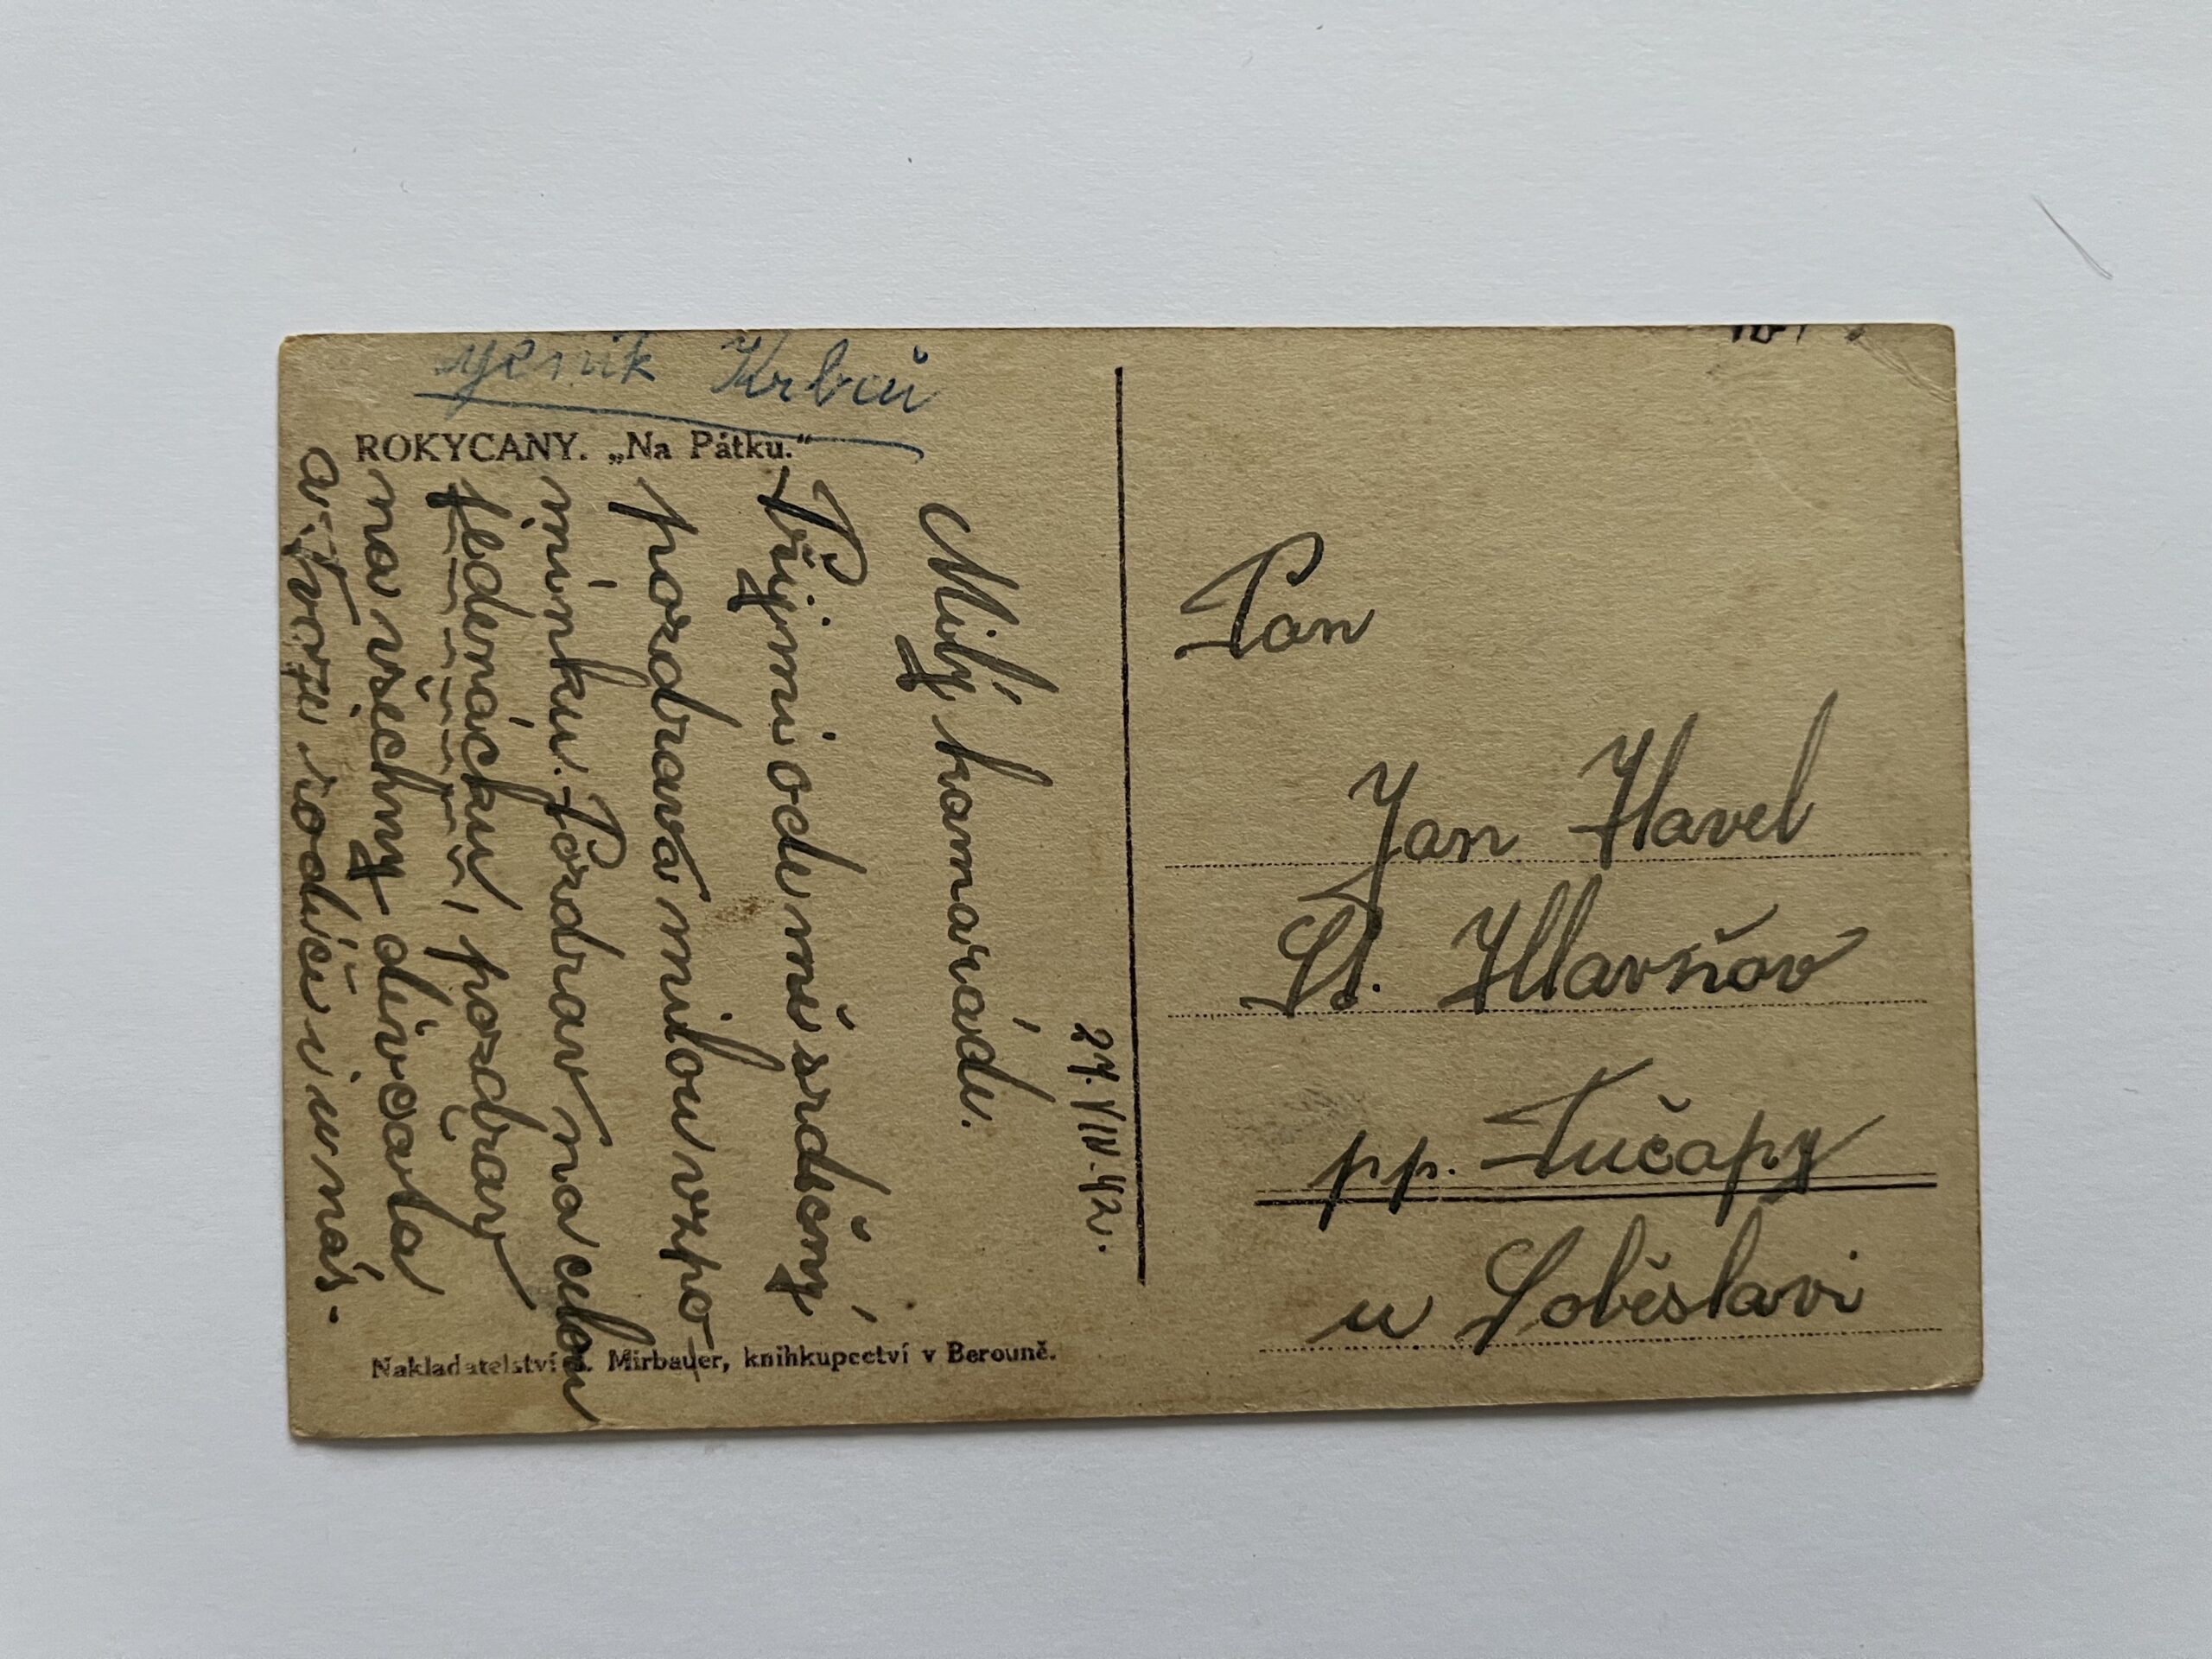 Krbců
ROKYCANY. „Na Pátku."
21. VIII. 42.
Milý kamaráde.
Přijmi ode mě srdečný
pozdrav a milou vzpo-
mínku. Pozdrav na celou
jedenáctku, pozdrav
na všechny děvčata
a Tvoze rodiče i u nás.
Nakladatelství Mirbauer, knihkupectví v Berouně.
Pan
Jan Havel
St. Hlavňov
pp. Tučapy
u Soběslavi